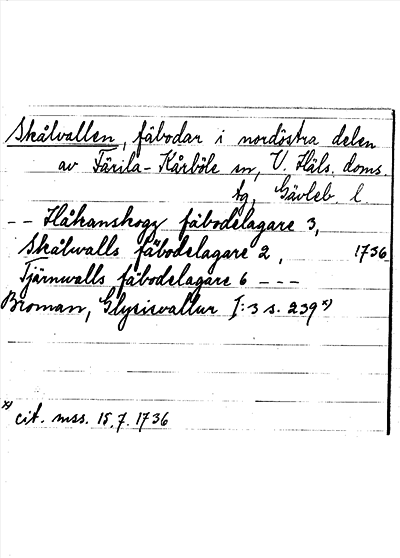 Skålvallen, fäbodar i nordöstra delen
av Färila-Kårböle sn, V. Häls. doms.
tg, Gävleb. l.
-- Håkanskogz fäbodelagare 3,
Skålwalls fäbodelagare 2, 1736
Tjärnwalls fäbodelagare 6 ---
Broman, Glysisvallur I:3 s. 239 x)
x) cit. mss. 15.7.1736